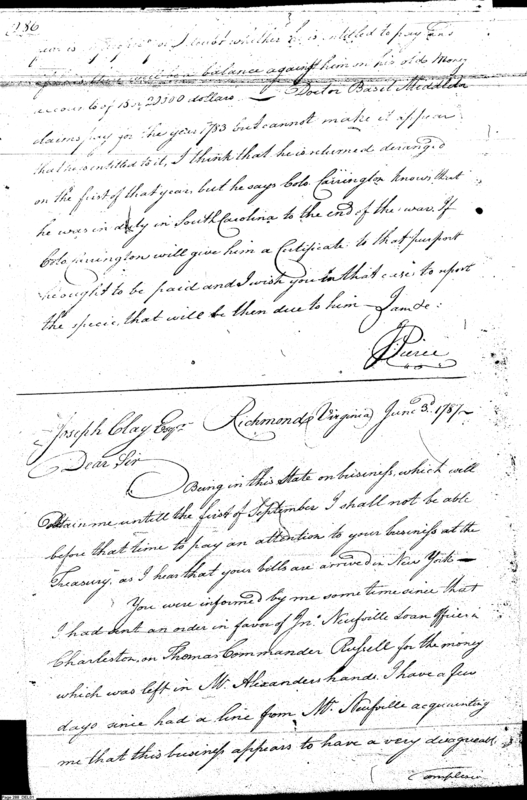 286
I doubt whether he is entitled to pay and
there will be a balance against him on his old Money
accounts of 15 or 2300 dollars. — Doctor Basil Middleton
claims pay for the year 1783 but cannot make it appear
that he is entitled to it, I think that he is returned deranged
on the first of that year, but he says Colo. Carrington knows that
he was in duty in South Carolina to the end of the war. If
Colo. Carrington will give him a Certificate to that purport
he ought to be paid and I wish you in that case, to report
the specie, that will be then due to him I am &c:
J Pierce
Joseph Clay Esqr. Richmond (Virginia) June 3d. 1787
Dear Sir
Being in this State on business, which will
detain me untill the first of September I shall not be able
before that time to pay an attention to your business at the
Treasury, as I hear that your bills are arrived in New York —
You were informed by me some time since that
I had sent an order in favor of Jno. Neufville Loan Officer in
Charleston, on Thomas Commander Russell for the money
which was left in Mr. Alexanders hands. I have a few
days since had a line from Mr. Neufville acquainting
me that this business appears to have a very disagreeable
complexion
Page 286